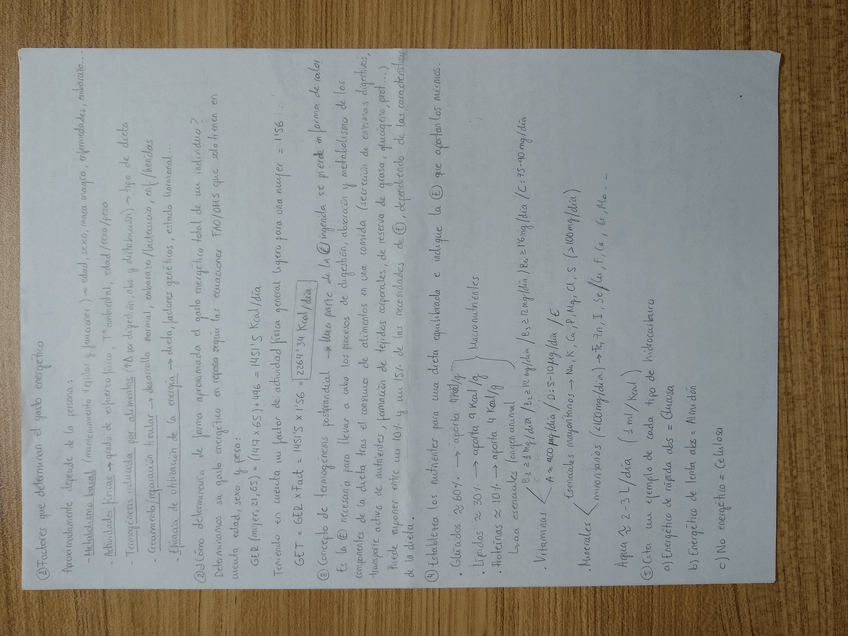 ① Factores que determinan el gasto energético
Aproximadamente depende de la persona:
- Metabolismo basal (mantenimiento tejidos y funciones) → edad, sexo, masa magra, enfermedades, embarazo...
- Actividades físicas → grado de esfuerzo físico, Tª ambiental, edad/sexo/peso
- Termogénesis inducida por alimentos ( digestión, abs y distribución) → tipo de dieta
- Crecimiento/reparación tisular → desarrollo normal, embarazo/lactancia, enf/heridas
- Eficiencia de utilización de la energía → dieta, factores genéticos, estado hormonal...
② ¿Cómo determinaría de forma aproximada el gasto energético total de un individuo?
Determinamos su gasto energético en reposo según las ecuaciones FAO/OMS que solo tienen en
cuenta edad, sexo y peso:
GER (mujer, 21, 65) = (14'7 × 65) + 496 = 1451'5 Kcal/día
Teniendo en cuenta un factor de actividad física general ligero para una mujer = 1'56
GET = GER × Fact = 1451'5 × 1'56 = 2264'34 Kcal/día
③ Concepto de termogénesis postprandial → Una parte de la Ⓔ ingerida se pierde en forma de calor
Es la Ⓔ necesaria para llevar a cabo los procesos de digestión, absorción y metabolismo de los
componentes de la dieta tras el consumo de alimentos en una comida (secreción de enzimas digestivos,
transporte activo de nutrientes, formación de tejidos corporales, de reserva de grasa, glucógeno, prot...)
Puede suponer entre un 10% y un 15% de las necesidades de Ⓔ, dependiendo de las características
de la dieta.
④ Establezca los nutrientes para una dieta equilibrada e indique la Ⓔ que aportan los mismos.
· Glúcidos ≈ 60% → aporta 4 Kcal/g
· Lípidos ≈ 30% → aporta 9 Kcal/g } Macronutrientes
· Proteínas ≈ 10% → aporta 4 Kcal/g
↳ aa esenciales (origen animal
· Vitaminas < B₁ = 1 mg/día / B₂ = 12 mg/día / B₃ = 12 mg/día / B₆ = 1'6 mg/día / C: 75-90 mg/día
A ≈ 900 µg/día / D: 5-10 µg/día / E
· Minerales < Esenciales mayoritarios → Na, K, Ca, P, Mg, Cl, S (>100mg/día)
minoritarios (<100mg/día) → Fe, Zn, I, Se / Cu, F, Co, Cr, Mo...
Agua ≈ 2-3 L/día (1 ml/Kcal)
⑤ Cita un ejemplo de cada tipo de hidrocarburo
a) Energético de rápida abs = Glucosa
b) Energético de lenta abs = Almidón
c) No energético = Celulosa